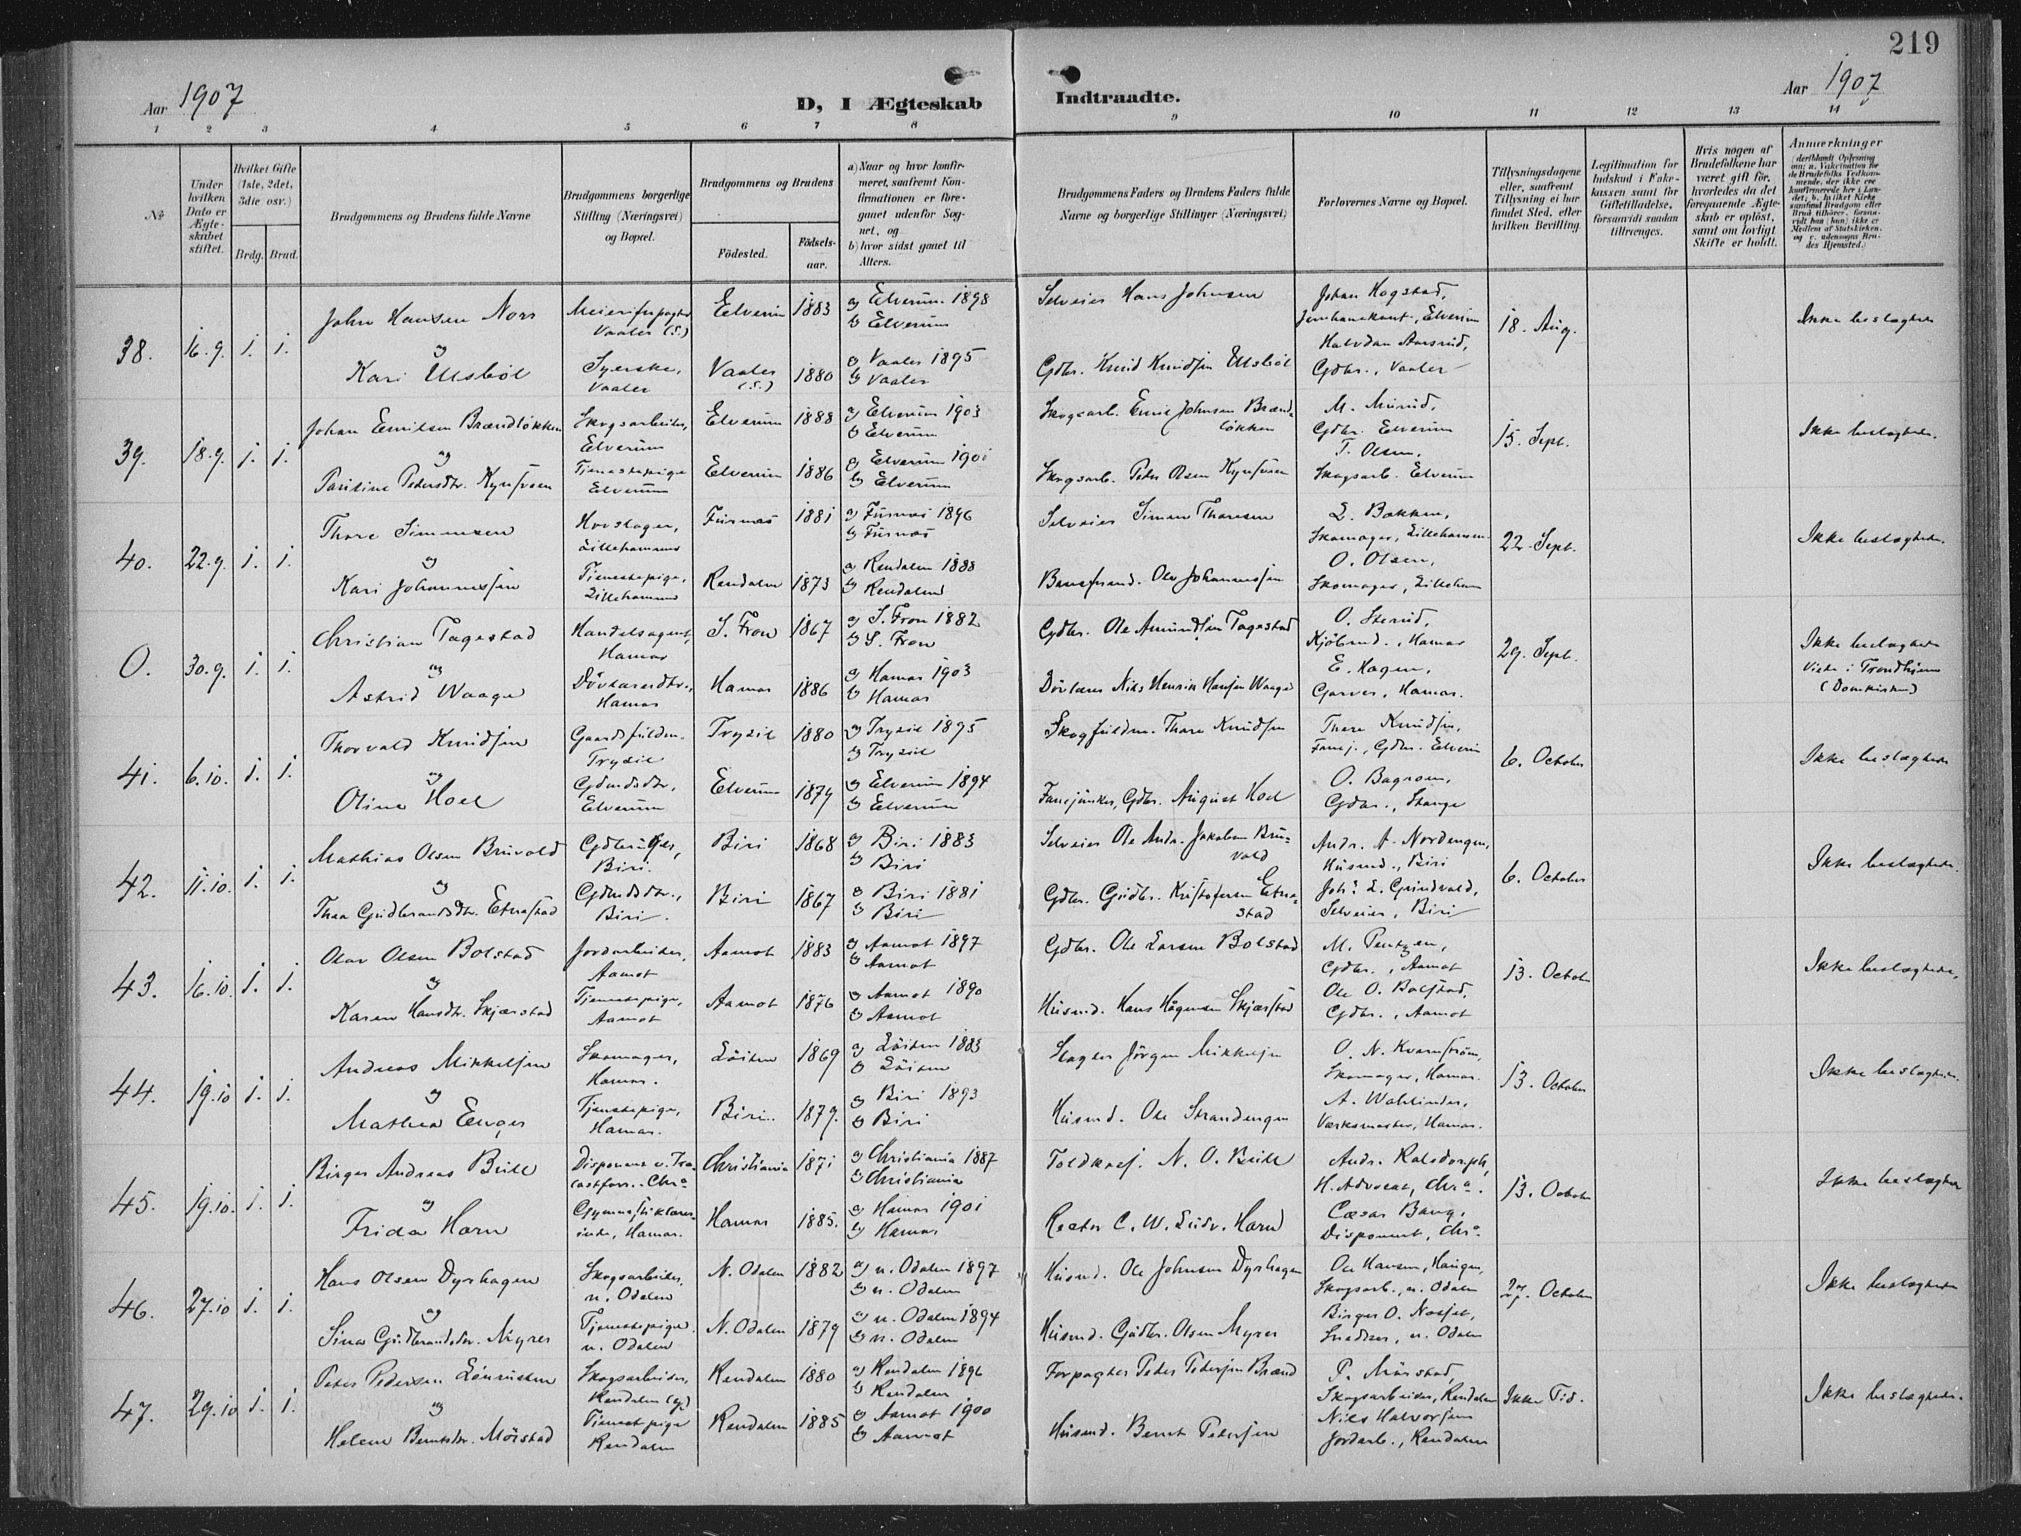 219
Aar 1907
D, I Ægteskab
Indtraadte.
Aar 1907
1 2 3 4 5 6 7 8 9 10 11 12 13 14
№
Under hvilken Dato er Ægteskabet stiftet.
Hvilket Gifte (1ste, 2det, 3die osv.)
Brdg. Brud.
Brudgommens og Brudens fulde Navne
Brudgommens borgerlige Stilling (Næringsvei) og Bopæl.
Brudgommens og Brudens
Födested.
Födselsaar.
a) Naar og hvor konfirmeret, saafremt Konfirmationen er foregaaet udenfor Sognet, og
b) hvor sidst gaaet til Alters.
Brudgommens Faders og Brudens Faders fulde Navne og borgerlige Stillinger (Næringsvei)
Forlovernes Navne og Bopæl.
Tillysningsdagene eller, saafremt Tillysning ei har fundet Sted, efter hvilken Bevilling.
Legitimation for Indskud i Enkekassen samt for Giftetilladelse, forsaavidt saadan tiltrænges.
Hvis nogen af Brudefolkene har været gift för, hvorledes da det foregaaende Ægteskab er oplöst, samt om lovligt Skifte er holdt.
Anmærkninger
38. 16.9. 1. 1.
John Hansen Nors
og
Kari Ulsböl
Vaaler (S.)
Syerske, Vaaler
Elverum 1883
Vaaler (S.) 1880
a) Elverum 1898
b) Elverum
a) Vaaler 1895
b) Vaaler
Selveier Hans Johnsen
Gdbr. Knud Knudsen Ulsböl
Johan Hogstad,
Elverum
Halvdan Aarsrud,
Gdbr., Vaaler
18. Aug.
Ikke beslægtede
39. 18.9. 1. 1.
Johan Emilsen Brændlökken
og
Pauline Pedersdtr. Kynsveen
Skogsarbeider, Elverum
Tjenestepige Elverum
Elverum 1888
Elverum 1886
a) Elverum 1903
b) Elverum
a) Elverum 1901
b) Elverum
Skogsarb. Emil Johnsen Brændlökken
Skogsarb. Peder Olsen Kynsveen
M. Murud,
Gdbr. Elverum
T. Olsen,
Skogsarb. Elverum
15. Sept.
Ikke beslægtede.
40. 22.9. 1. 1.
Thore Simensen
og
Kari Johannessen
Hovslager, Lillehammer
Tjenestepige, Lillehammer
Furnæs 1881
Rendalen 1873
a) Furnæs 1896
b) Furnæs
a) Rendalen 1888
b) Rendalen
Selveier Simen Thoresen
Ole Johannessen
L. Bakken,
Skomager, Lillehammer
O. Olsen,
Skomager, Lilleham
22. Sept.
Ikke beslægtede.
0. 30.9. 1. 1.
Christian Tagestad
og
Astrid Waage
Handelsagent, Hamar
Dövlærerdtr., Hamar
S. Fron 1867
Hamar 1886
a) S. Fron 1882
b) S. Fron
a) Hamar 1903
b) Hamar
Gdbr. Ole Amundsen Tagestad
Dövlærer Nils Henrik Hansen Waage
O. Sterud,
Kjöbmd., Hamar
E. Hagen,
Garver, Hamar.
29. Sept.
Ikke beslægtede
Viede i Trondhjem
(Domkirken)
41. 6.10. 1. 1.
Thorvald Knudsen
og
Olina Hoel
Trysil
Gdmdsdtr, Elverum
Trysil 1880
Elverum 1879
a) Trysil 1895
b) Trysil
a) Elverum 1894
b) Elverum
Thore Knudsen
Fanejunker, Gdbr. August Hoel
Thore Knudsen,
Fanej., Gdbr. Elverum
O. Bagroen,
Gdbr., Stange
6. October
Ikke beslægtede
42. 11.10. 1. 1.
Mathias Olsen Bruvold
og
Thea Gudbrandsdtr. Etnastad
Gdbruger, Biri.
Gdmdsdtr., Biri.
Biri 1868
Biri 1867
a) Biri 1883
b) Biri
a) Biri 1881
b) Biri
Selveier Ole Andr. Jakobsen Bruvold
Gdbr. Gudbr. Kristofersen Etnastad
Andr. A. Nordengen,
Husmd., Biri
Johs. L. Grindvold,
Selveier, Biri
6. October
Ikke beslægtede.
43. 16.10. 1. 1.
Olav Olsen Bolstad
og
Karen Hansdtr. Skjærstad
Jordarbeider, Aamot
Tjenestepige, Aamot
Aamot 1883
Aamot 1876
a) Aamot 1897
b) Aamot
a) Aamot 1890
b) Aamot
Gdbr. Ole Larsen Bolstad
Husmd. Hans Hågensen Skjærstad
M. Pentzen,
Gdbr., Aamot
Ole O. Bolstad,
Gdbr., Aamot
13. October
Ikke beslægtede.
44. 19.10 1. 1.
Andreas Mikkelsen
og
Mathea Enger
Skomager, Hamar.
Tjenestepige, Hamar.
Löiten 1869
Biri. 1879.
a) Löiten 1883
b) Löiten
a) Biri 1893
b) Biri
Slagter Jörgen Mikkelsen
Husmd. Ole Strandengen
O. N. Kvarnström,
Skomager, Hamar.
A. Wahlinder,
Værksmester, Hamar.
13. October
Ikke beslægtede.
45. 19.10. 1. 1.
Birger Andreas Brill
og
Frida Horn
Gymnastiklærerinde, Hamar.
Christiania 1871
Hamar 1885.
a) Christiania 1887
b) Christiania
a) Hamar 1901
b) Hamar
N. O. Brill
Rector C. W. Ludv. Horn
Andr. Rolsdorph,
H. Advocat, Chra.
Cæsar Bang,
Disponent, Chra.
13. October
Ikke beslægtede
46. 27.10 1. 1.
Hans Olsen Dyrhagen
og
Sina Gudbrandsdtr. Myrer
Skogsarbeider, n. Odalen
Tjenestepige n. Odalen
N. Odalen 1882
N. Odalen 1879
a) n. Odalen 1897
b) n. Odalen
a) n. Odalen 1894
b) n. Odalen
Husmd. Ole Johnsen Dyrhagen
Husmd. Gudbr. Olsen Myrer
Ole Hansen, Haugen,
Skogsarb., n. Odalen
Birger O. Næsset,
Snedker, n. Odalen
27. October
Ikke beslægtede
47. 29.10 1. 1.
Peter Pedersen Lönrusten
og
Helene Berntsdtr. Mörstad
Skogsarbeider, Rendalen
Tjenestepige Rendalen
Rendalen 1880
Rendalen 1885
a) Rendalen 1896
b) Rendalen
a) Aamot 1900
b) Aamot
Forpagter Peter Pedersen Brænd
Husmd. Bernt Petersen
P. Mörstad,
Skogsarbeider, Rendalen
Nils Halvorsen
Jordarb., Rendalen
Ikke Tid.
Ikke beslægtede.